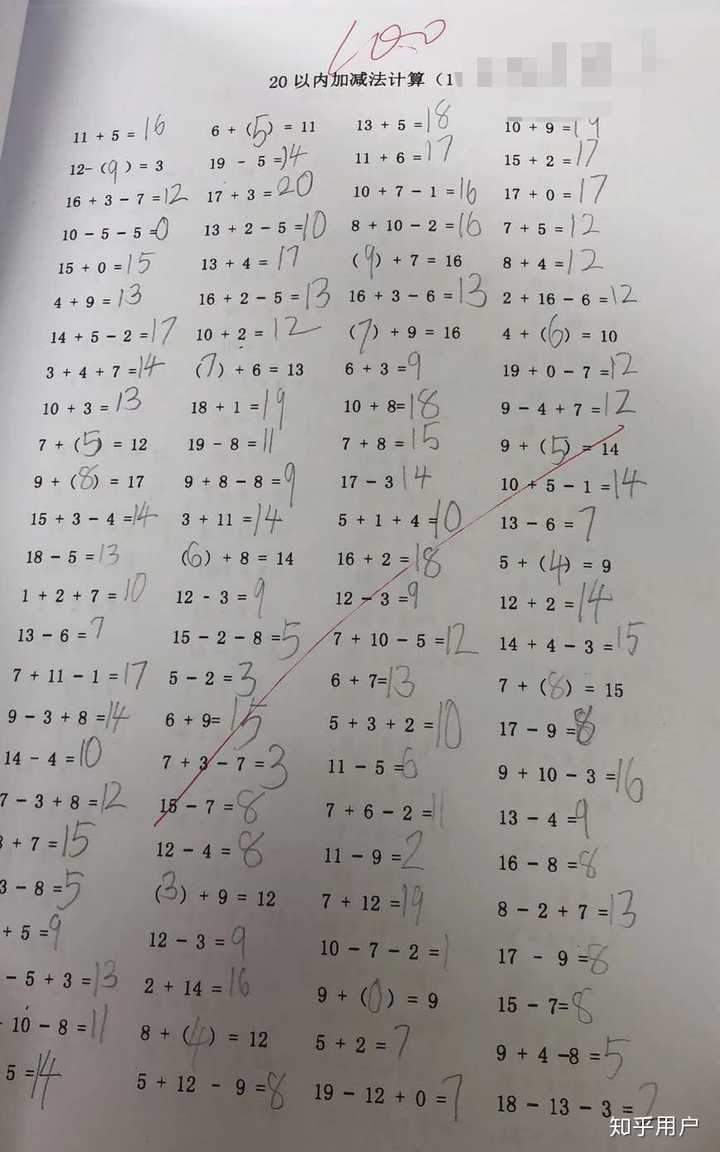 100
20 以内加减法计算（1
11 + 5 = 16 6 + (5) = 11 13 + 5 = 18 10 + 9 = 19
12- (9) = 3 19 - 5 = 14 11 + 6 = 17 15 + 2 = 17
16 + 3 - 7 = 12 17 + 3 = 20 10 + 7 - 1 = 16 17 + 0 = 17
10 - 5 - 5 = 0 13 + 2 - 5 = 10 8 + 10 - 2 = 16 7 + 5 = 12
15 + 0 = 15 13 + 4 = 17 (9) + 7 = 16 8 + 4 = 12
4 + 9 = 13 16 + 2 - 5 = 13 16 + 3 - 6 = 13 2 + 16 - 6 = 12
14 + 5 - 2 = 17 10 + 2 = 12 (7) + 9 = 16 4 + (6) = 10
3 + 4 + 7 = 14 (7) + 6 = 13 6 + 3 = 9 19 + 0 - 7 = 12
10 + 3 = 13 18 + 1 = 19 10 + 8= 18 9 - 4 + 7 = 12
7 + (5) = 12 19 - 8 = 11 7 + 8 = 15 9 + (5) = 14
9 + (8) = 17 9 + 8 - 8 = 9 17 - 3 14 10 + 5 - 1 = 14
15 + 3 - 4 = 14 3 + 11 = 14 5 + 1 + 4 = 10 13 - 6 = 7
18 - 5 = 13 (6) + 8 = 14 16 + 2 = 18 5 + (4) = 9
1 + 2 + 7 = 10 12 - 3 = 9 12 - 3 = 9 12 + 2 = 14
13 - 6 = 7 15 - 2 - 8 = 5 7 + 10 - 5 = 12 14 + 4 - 3 = 15
7 + 11 - 1 = 17 5 - 2 = 3 6 + 7= 13 7 + (8) = 15
9 - 3 + 8 = 14 6 + 9= 15 5 + 3 + 2 = 10 17 - 9 = 8
14 - 4 = 10 7 + 3 - 7 = 3 11 - 5 = 6 9 + 10 - 3 = 16
7 - 3 + 8 = 12 15 - 7 = 8 7 + 6 - 2 = 11 13 - 4 = 9
+ 7 = 15 12 - 4 = 8 11 - 9 = 2 16 - 8 = 8
3 - 8 = 5 (3) + 9 = 12 7 + 12 = 19 8 - 2 + 7 = 13
+ 5 = 9 12 - 3 = 9 10 - 7 - 2 = 1 17 - 9 = 8
- 5 + 3 = 13 2 + 14 = 16 9 + (0) = 9 15 - 7= 8
10 - 8 = 11 8 + (4) = 12 5 + 2 = 7 9 + 4 -8 = 5
5 = 14 5 + 12 - 9 = 8 19 - 12 + 0 = 7 18 - 13 - 3 = 2
知乎用户